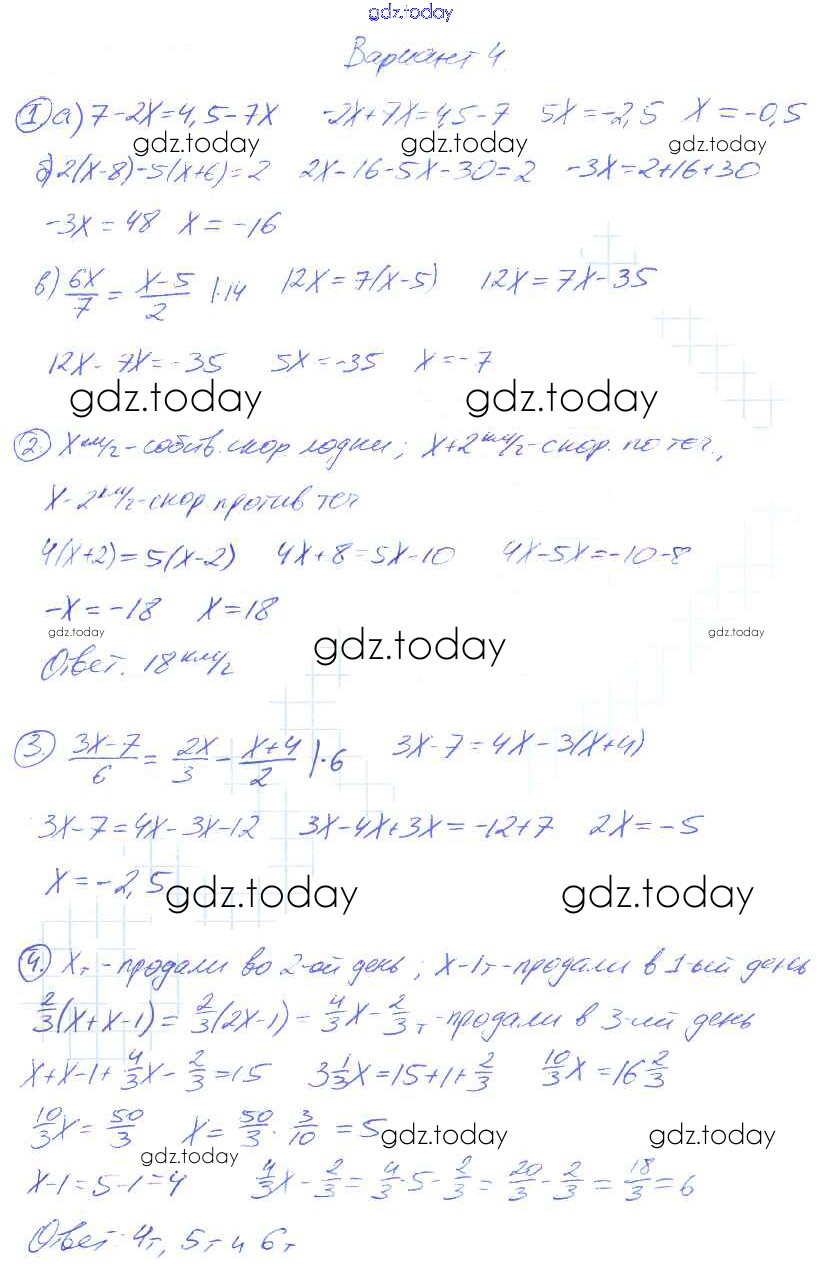 gdz.today
Вариант 4.
1 а) 7-2x=4,5-7x -2x+7x=4,5-7 5x=-2,5 x=-0,5
gdz.today gdz.today gdz.today
б) 2(x-8)-5(x+6)=2 2x-16-5x-30=2 -3x=2+16+30
-3x=48 x=-16
в) 6x/7 = x-5/2 |·14 12x=7(x-5) 12x=7x-35
12x-7x=-35 5x=-35 x=-7
gdz.today gdz.today
2. x км/г - собств. скор. лодки; x+2 км/г - скор. по теч.,
x-2 км/г - скор. против теч
4(x+2)=5(x-2) 4x+8=5x-10 4x-5x=-10-8
-x=-18 x=18
gdz.today gdz.today gdz.today
Ответ. 18 км/г
3. 3x-7/6 = 2x/3 - x+4/2 |·6 3x-7=4x-3(x+4)
3x-7=4x-3x-12 3x-4x+3x=-12+7 2x=-5
x=-2,5
gdz.today gdz.today
4. xт - продали во 2-ой день; x-1т - продали в 1-ый день
2/3(x+x-1)= 2/3(2x-1)= 4/3x - 2/3 т - продали в 3-ий день
x+x-1+4/3x-2/3=15 3 1/3x=15+1+2/3 10/3x=16 2/3
10/3x=50/3 x=50/3·3/10=5
gdz.today gdz.today gdz.today
x-1=5-1=4 4/3x-2/3=4/3·5-2/3=20/3-2/3=18/3=6
Ответ: 4т, 5т и 6т